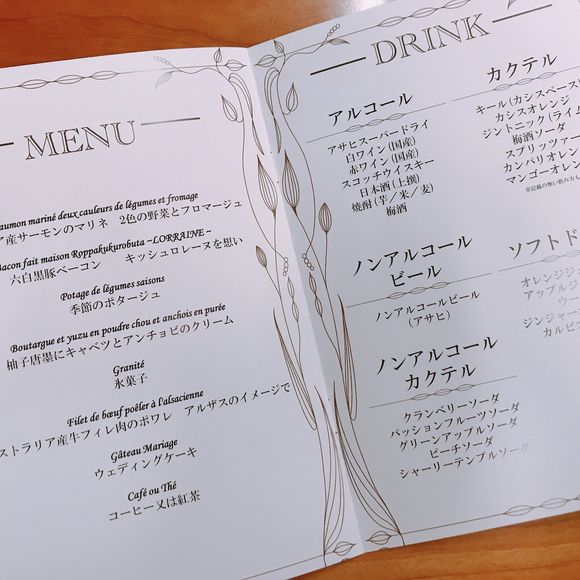 MENU
mariné deux cauleurs de légumes et fromage
産サーモンのマリネ 2色の野菜とフロマージュ
Bacon fait maison Roppakukurobuta ~LORRAINE~
六白黒豚ベーコン キッシュロレーヌを想い
Potage de légumes saisons
季節のポタージュ
Boutargue et yuzu en poudre chou et anchois en purée
柚子唐墨にキャベツとアンチョビのクリーム
Granité
氷菓子
Filet de bœuf poêler à l'alsacienne
ストラリア産牛フィレ肉のポワレ アルザスのイメージで
Gâteau Mariage
ウェディングケーキ
Café ou Thé
コーヒー又は紅茶
DRINK
アルコール
アサヒスーパードライ
白ワイン(国産)
赤ワイン(国産)
スコッチウイスキー
日本酒(上撰)
焼酎(芋/米/麦)
梅酒
ノンアルコール
ビール
ノンアルコールビール
(アサヒ)
ノンアルコール
カクテル
クランベリーソーダ
パッションフルーツソーダ
グリーンアップルソーダ
ピーチソーダ
シャーリーテンプルソーダ
カクテル
キール(カシスベース
カシスオレンジ
ジントニック(ライム
梅酒ソーダ
スプリッツァー
カンパリオレンジ
マンゴーオレン
※記載の無い飲み方も
ソフトド
オレンジジ
アップルジ
ウー
ジンジャー
カルピ